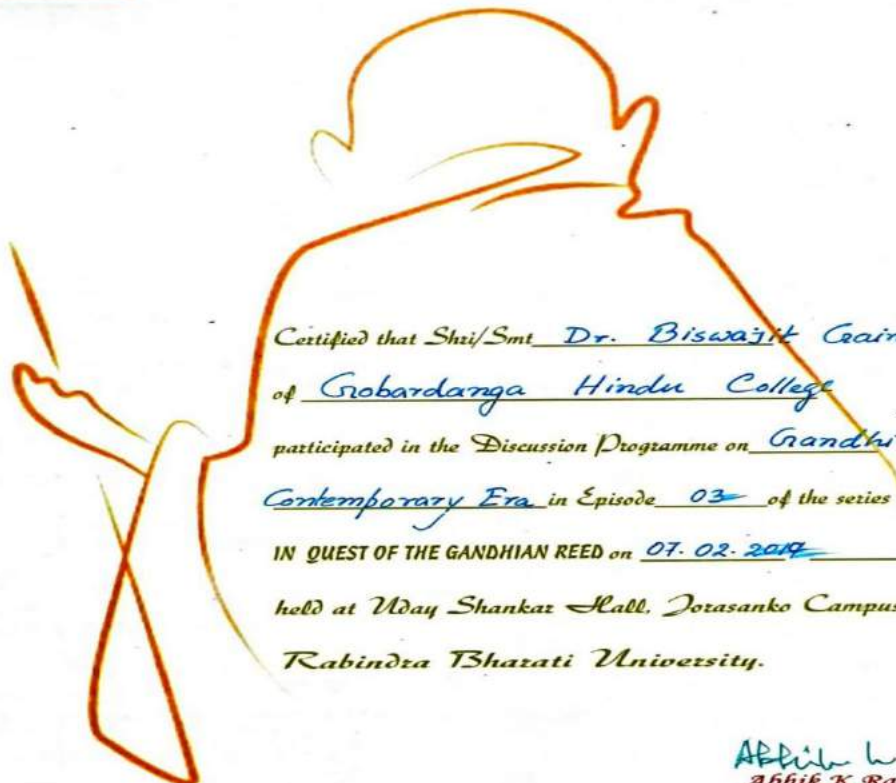 Certified that Shri/Smt Dr. Biswajit Gain
of Gobardanga Hindu College
participated in the Discussion Programme on Gandhi
Contemporary Era in Episode 03 of the series
IN QUEST OF THE GANDHIAN REED on 07.02.2019
held at Uday Shankar Hall, Jorasanko Campus
Rabindra Bharati University.
Abhik
Abhik K Ra